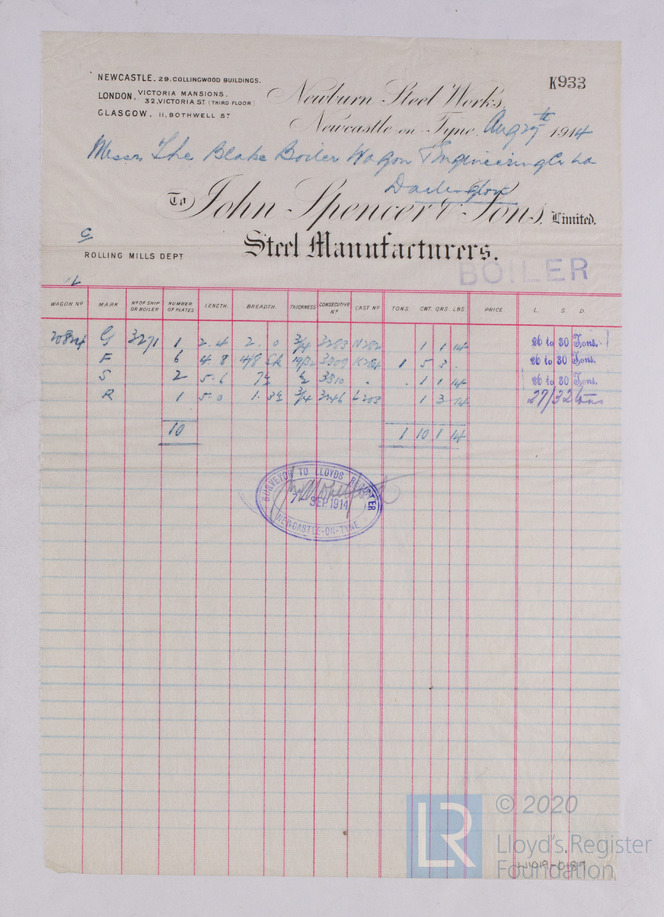 NEWCASTLE. 29. COLLINGWOOD BUILDINGS.
LONDON. VICTORIA MANSIONS.
32, VICTORIA ST. (THIRD FLOOR)
GLASGOW. 11, BOTHWELL ST
K933
Newburn Steel Works
Newcastle on Tyne, Aug 29th 1914
Messrs The Blake Boiler Wagon & Engineering Co Ld
Darlington
To John Spencer & Sons, Limited.
Steel Manufacturers.
C
ROLLING MILLS DEPT
BOILER
WAGON No MARK No OF SHIP OR BOILER NUMBER OF PLATES LENGTH. BREADTH. THICKNESS CONSECUTIVE No CAST No TONS. CWT. QRS. LBS PRICE L. S. D.
G 3271 1 2.4 2.0 3/4 1 1 14 26 to 30 Tons.
F 6 4.8 19/32 1 5 3 . 26 to 30 Tons.
S 2 5.6 7½ 3310 . 1 1 14 26 to 30 Tons.
R 1 5.0 1.3½ 3/4 1 3 14 27/32 tons
10 1 10 1 14
SURVEYOR TO LLOYDS REGISTER
SEP. 1914
NEWCASTLE-ON-TYNE
LR
© 2020
Lloyd's Register
Foundation